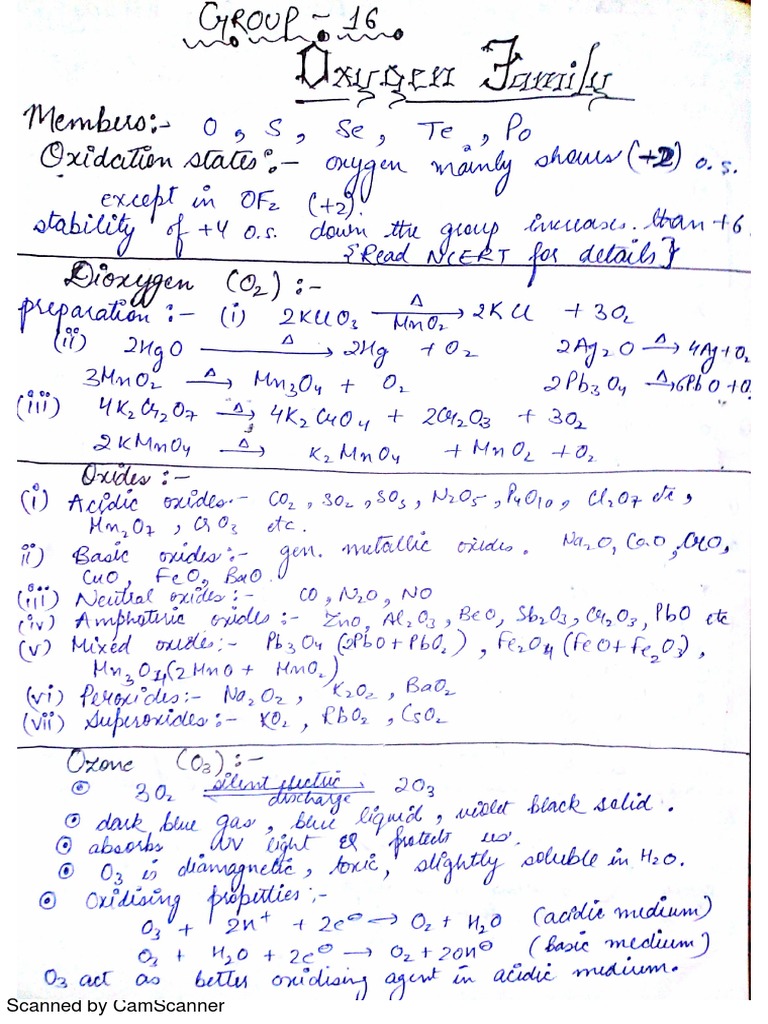 GROUP - 16
Oxygen Family
Members:- O, S, Se, Te, Po
Oxidation states:- oxygen mainly shows (-2) o.s.
except in OF₂ (+2).
stability of +4 o.s. down the group increases than +6
{Read NCERT for details}
Dioxygen (O₂):-
preparation:- (i) 2KClO₃ —Δ/MnO₂→ 2KCl + 3O₂
(ii) 2HgO —Δ→ 2Hg + O₂ 2Ag₂O —Δ→ 4Ag + O₂
3MnO₂ —Δ→ Mn₃O₄ + O₂ 2Pb₃O₄ —Δ→ 6PbO + O
(iii) 4K₂Cr₂O₇ —Δ→ 4K₂CrO₄ + 2Cr₂O₃ + 3O₂
2KMnO₄ —Δ→ K₂MnO₄ + MnO₂ + O₂
Oxides:-
(i) Acidic oxides:- CO₂, SO₂, SO₃, N₂O₅, P₄O₁₀, Cl₂O₇ etc,
Mn₂O₇, CrO₃ etc.
ii) Basic oxides:- gen. metallic oxides. Na₂O, CaO, CrO,
CuO, FeO, BaO.
(iii) Neutral oxides:- CO, N₂O, NO
(iv) Amphoteric oxides:- ZnO, Al₂O₃, BeO, Sb₂O₃, Cr₂O₃, PbO etc
(v) Mixed oxides:- Pb₃O₄ (2PbO + PbO₂), Fe₂O₄ (FeO + Fe₂O₃),
Mn₃O₄ (2MnO + MnO₂)
(vi) Peroxides:- Na₂O₂, K₂O₂, BaO₂
(vii) Superoxides:- KO₂, RbO₂, CsO₂
Ozone (O₃):-
⊙ 3O₂ silent electric discharge 2O₃
⊙ dark blue gas, blue liquid, violet black solid.
⊙ absorbs UV light & protect us.
⊙ O₃ is diamagnetic, toxic, slightly soluble in H₂O.
⊙ Oxidising properties:-
O₃ + 2H⁺ + 2e⊖ → O₂ + H₂O (acidic medium)
O₃ + H₂O + 2e⊖ → O₂ + 2OH⊖ (basic medium)
O₃ act as better oxidising agent in acidic medium.
Scanned by CamScanner